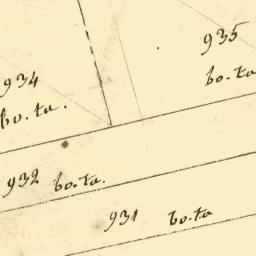 935
bo.ta
934
bo.ta.
932 bo.ta.
931 bo.ta